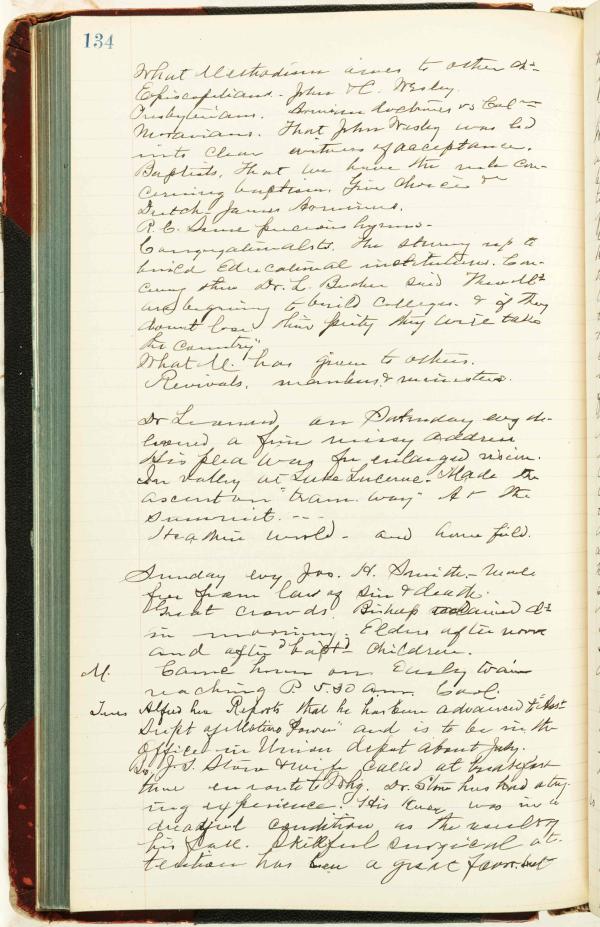 134
What Methodism owes to other Chs
Episcopalians - John & C. Wesley.
Presbyterians. Arminian doctrines vs Cal
Moravians. That John Wesley was led
into clear witness of acceptance.
Baptists. That we have the rule con-
cerning baptism. Give choice &c
Dutch - James Arminius.
R. C. Some precious hymns -
Congregationalists. The stirring up to
build Educational institutions. Con-
cerning this Dr. L. said The Mts
are beginning to build colleges. & if they
dount lose their piety they will take
the country"
What M. has given to others.
Revivals, members & ministers.
Dr Leonard on Saturday evg de-
livered a fine missy address
His plea was for enlarged vision.
In valley at Lake Lucerne. Made the
ascent on "tram-way" At the
summit. ---
Heathen world - and home field.
Sunday evg Jos. H. Smith - Made
free from law of sin & death.
Great crowds. Bishop ordained Ds
in morning. Elders afternoon
and after bapt'd children.
M. Came home on Early train
reaching P 5.30 am. Carl.
Tues Alfred here Reports that he has been advanced to "Asst
Supt of Motive Power" and is to be in the
Office in Union depot about July.
Dr J. S. & wife called at breakfast
time en route to Whg. Dr. has had a try-
ing experience. His knee was in a
dreadful condition as the result of
his fall. Skillful surgical at-
tention has been a great favor. but